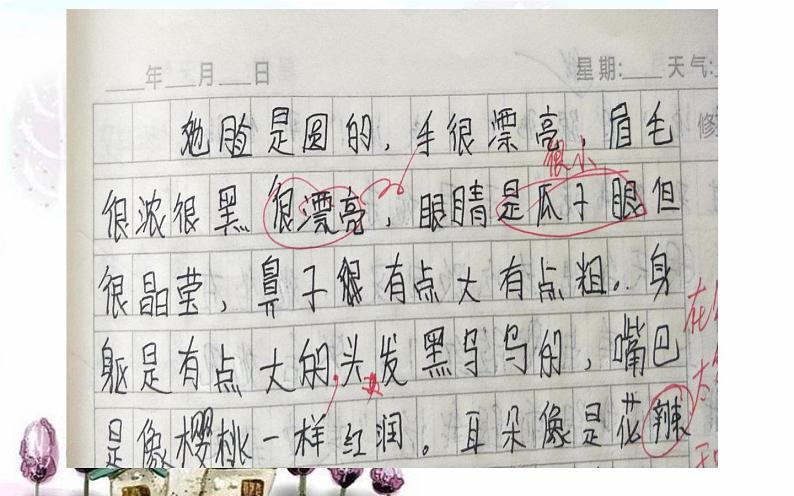 年 月 日 星期: 天气:
她脸是圆的，手很漂亮，眉毛 修
很小
很浓很黑 很漂亮，眼睛是瓜子眼但
很晶莹，鼻子很有点大有点粗。身
躯是有点大的，头发黑乌乌的，嘴巴
是像樱桃一样红润。耳朵像是花辣